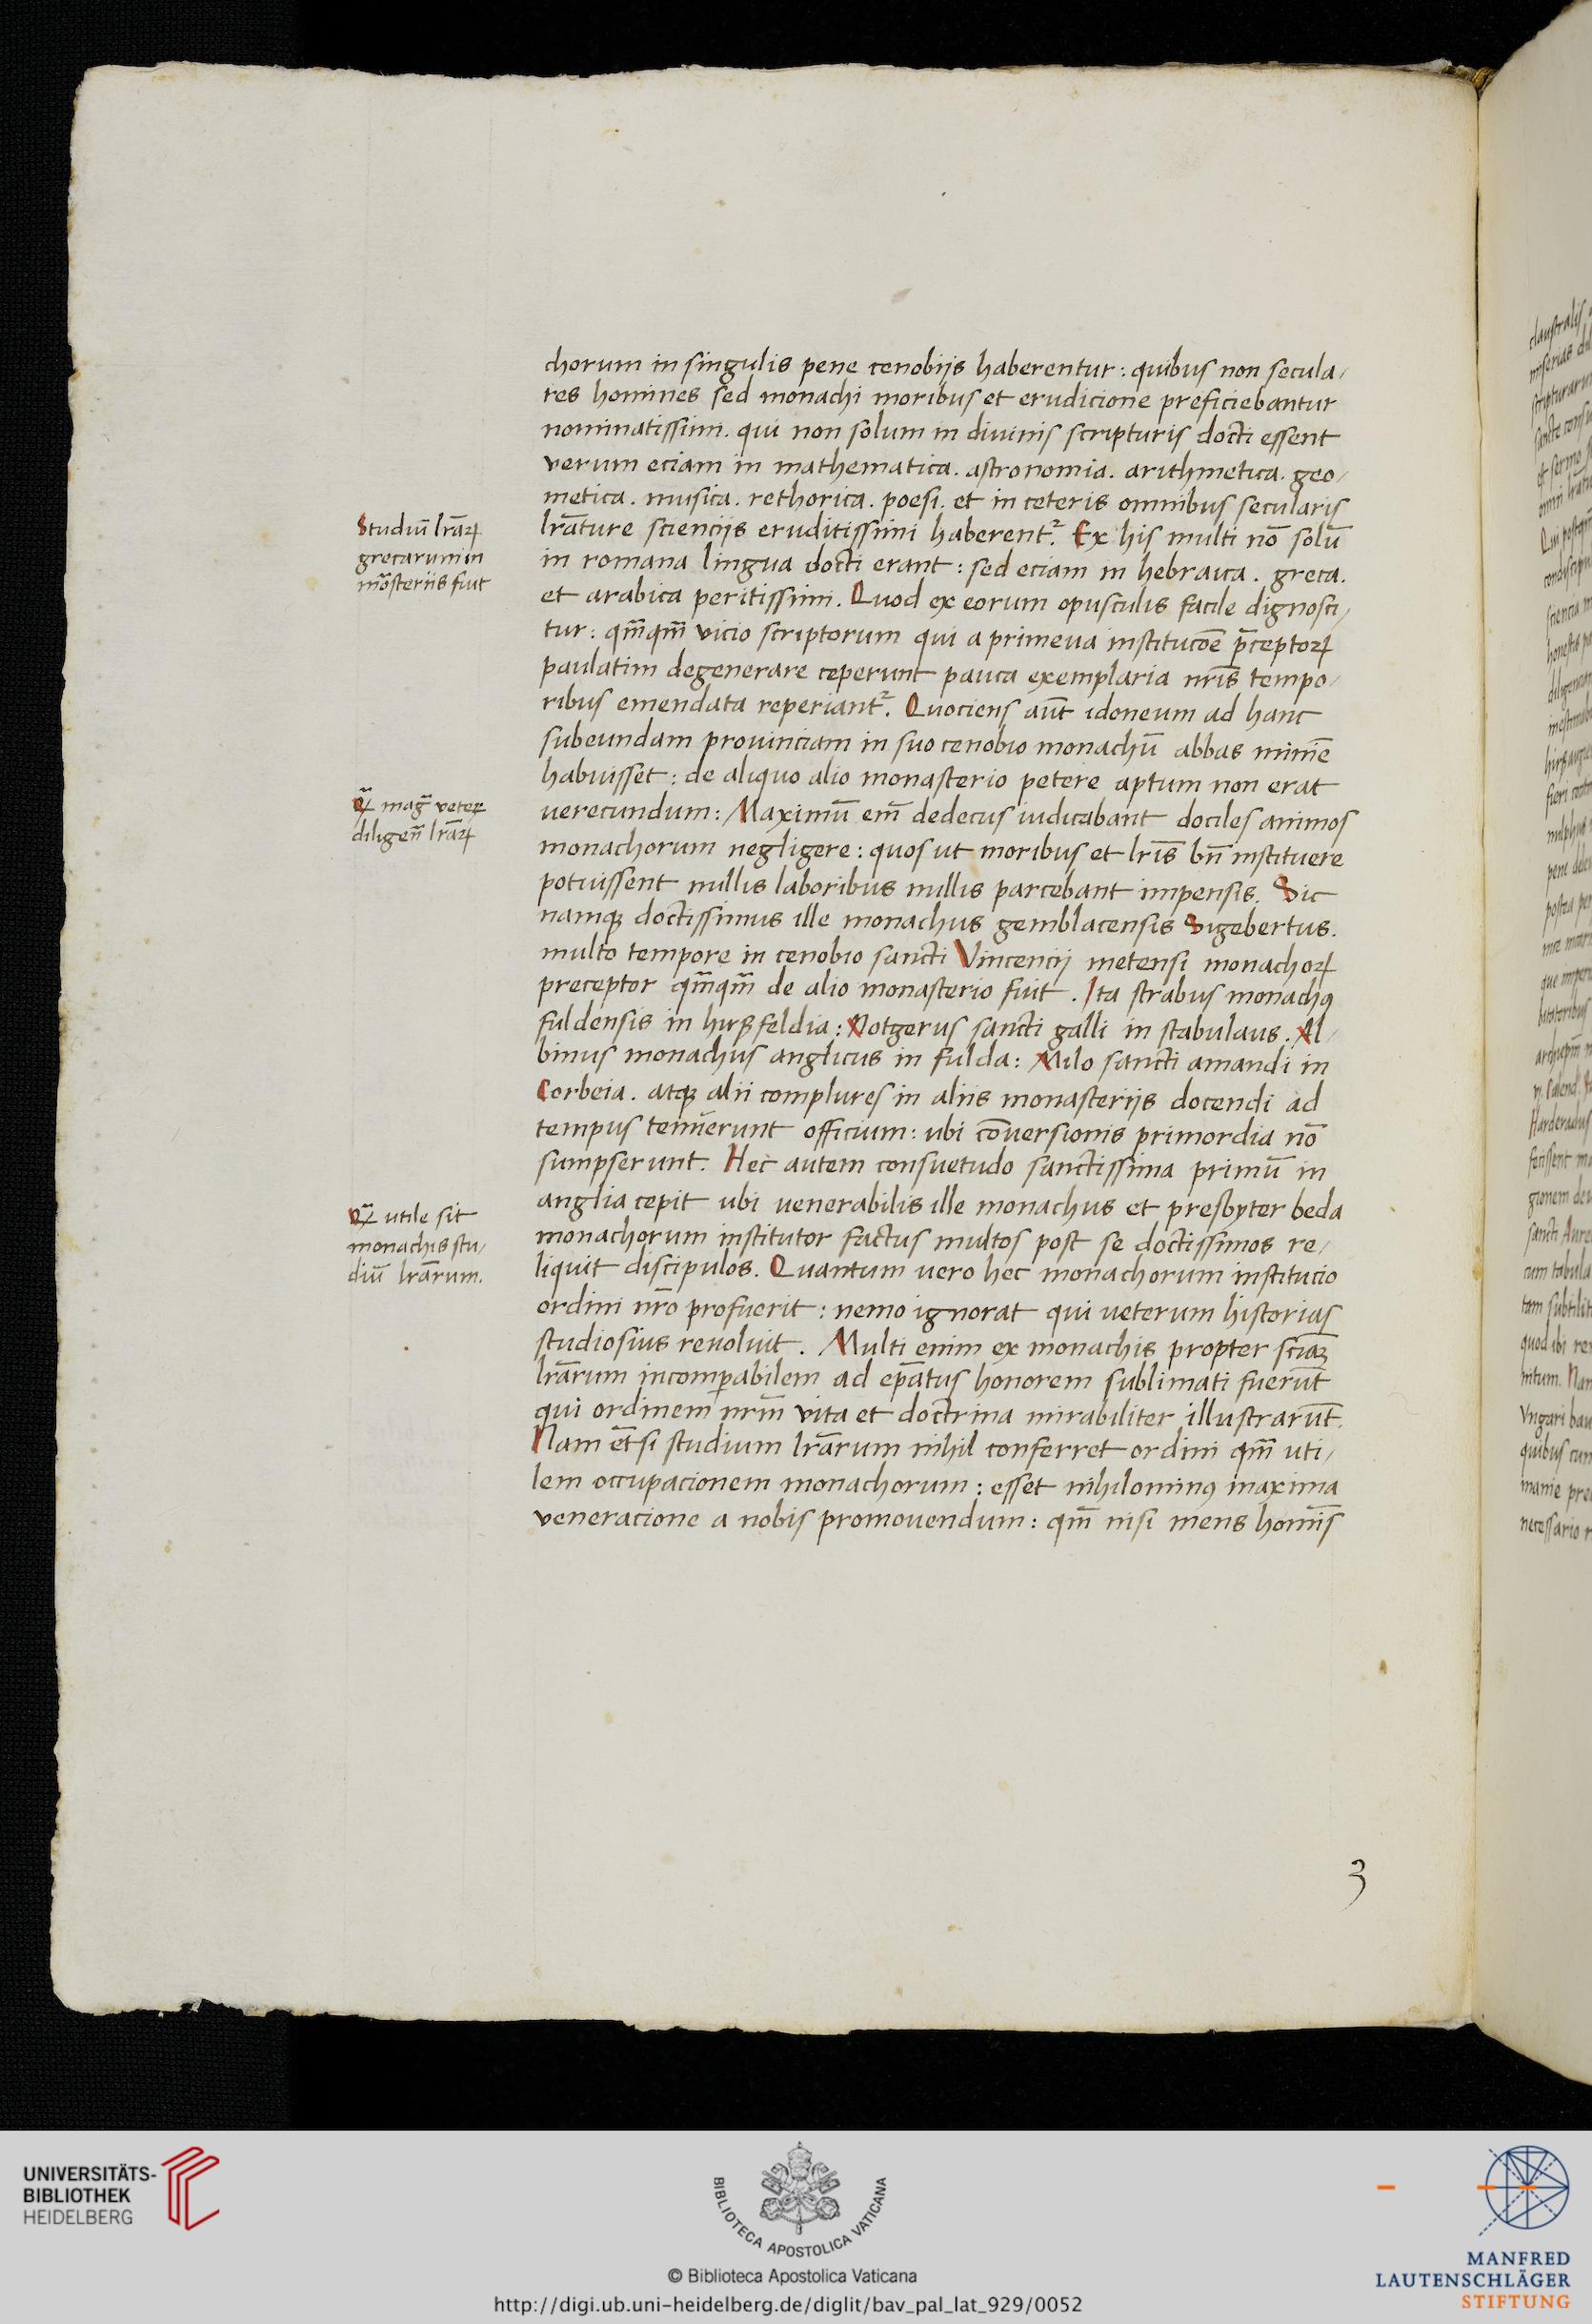 chorum in singulis pene cenobijs haberentur: quibus non secula/
res homines sed monachi moribus et erudicione preficiebantur
nominatissimi. qui non solum in divinis scripturis docti essent
verum eciam in mathematica. astronomia. arithmetica. geo/
metica. musica. rethorica. poesi. et in ceteris omnibus secularis
Studiū lr̄aꝝ
grecarum in
mōsteriis fuit
lr̄ature sciencijs eruditissimi haberentᷣ. Ex his multi nō solū
in romana lingua docti erant: sed eciam in hebraica. greca.
et arabica peritissimi. Quod ex eorum opusculis facile dignosci/
tur: qm̄qm̄ vicio scriptorum qui a primeua institucōe p̄ceptoꝝ
paulatim degenerare ceperunt pauca exemplaria nr̄is tempo/
ribus emendata reperiantᷣ. Quociens aūt idoneum ad hanc
subeundam prouinciam in suo cenobio monachū abbas mīme
habuisset: de aliquo alio monasterio petere aptum non erat
mag̃ veteꝝ
diligen̄ lr̄aꝝ
uerecundum: Maximū em̄ dedecus iudicabant dociles animos
monachorum negligere: quos ut moribus et lr̄is bn̄ instituere
potuissent nullis laboribus nullis parcebant impensis. Sic
namqꝫ doctissimus ille monachus gemblacensis Sigebertus.
multo tempore in cenobio sancti Vincencij metensi monachoꝝ
preceptor qm̄qm̄ de alio monasterio fuit. Ita strabus monachꝰ
fuldensis in hirßfeldia: Notgerus sancti galli in stabulaus. Al/
binus monachus anglicus in fulda: Milo sancti amandi in
Corbeia. atqꝫ alii complures in aliis monasterijs docendi ad
tempus tenuerunt officium: ubi cōuersionis primordia nō
sumpserunt. Hec autem consuetudo sanctissima primū in
utile sit
monachis stu/
diū lr̄arum.
anglia cepit ubi uenerabilis ille monachus et presbyter beda
monachorum institutor factus multos post se doctissimos re/
liquit discipulos. Quantum uero hec monachorum institucio
ordini nr̄o profuerit: nemo ignorat qui ueterum historias
studiosius reuoluit. Multi enim ex monachis propter sciaꝫ
lr̄arum incomꝑabilem ad ep̄atus honorem sublimati fuerūt
qui ordinem nrm̄ vita et doctrina mirabiliter illustrarūt.
Nam et̄si studium lr̄arum nihil conferret ordini qm̄ uti/
lem occupacionem monachorum: esset nihilominꝰ maxima
veneracione a nobis promouendum: qm̄ nisi mens homīs
3
claustralis
UNIVERSITÄTS-
BIBLIOTHEK
HEIDELBERG
BIBLIOTECA APOSTOLICA VATICANA
© Biblioteca Apostolica Vaticana
http://digi.ub.uni-heidelberg.de/diglit/bav_pal_lat_929/0052
MANFRED
LAUTENSCHLÄGER
STIFTUNG